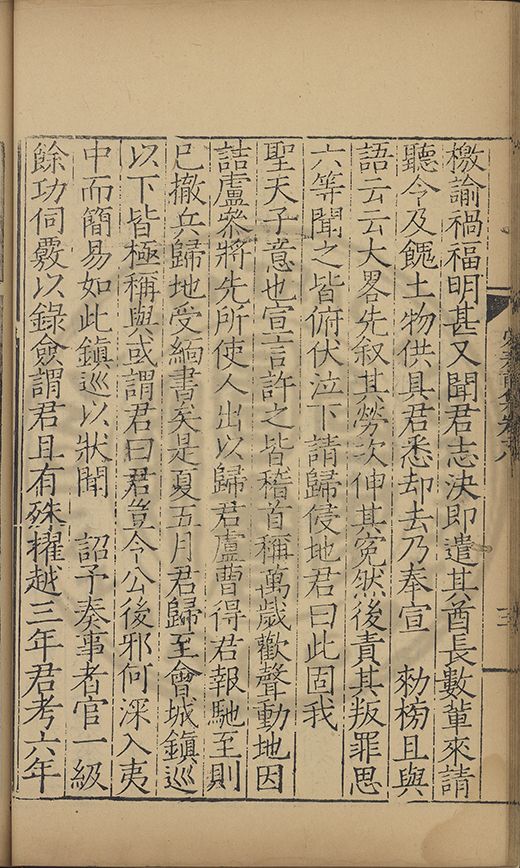 檄諭禍福明甚又聞君志決即遣其酋長數輩來請
聽令及餽土物供具君悉却去乃奉宣　勑榜且與
語云云大畧先叙其勞次伸其寃然後責其叛罪思
六等聞之皆俯伏泣下請歸侵地君曰此固我
聖天子意也宣言許之皆稽首稱萬歲歡聲動地因
詰盧叅將先所使人出以歸君盧曹得君報馳至則
已撤兵歸地受緬書矣是夏五月君歸至會城鎮巡
以下皆極稱與或謂君曰君豈令公後邪何深入夷
中而簡易如此鎮巡以狀聞　詔予奏事者官一級
餘功伺覈以錄僉謂君且有殊擢越三年君考六年